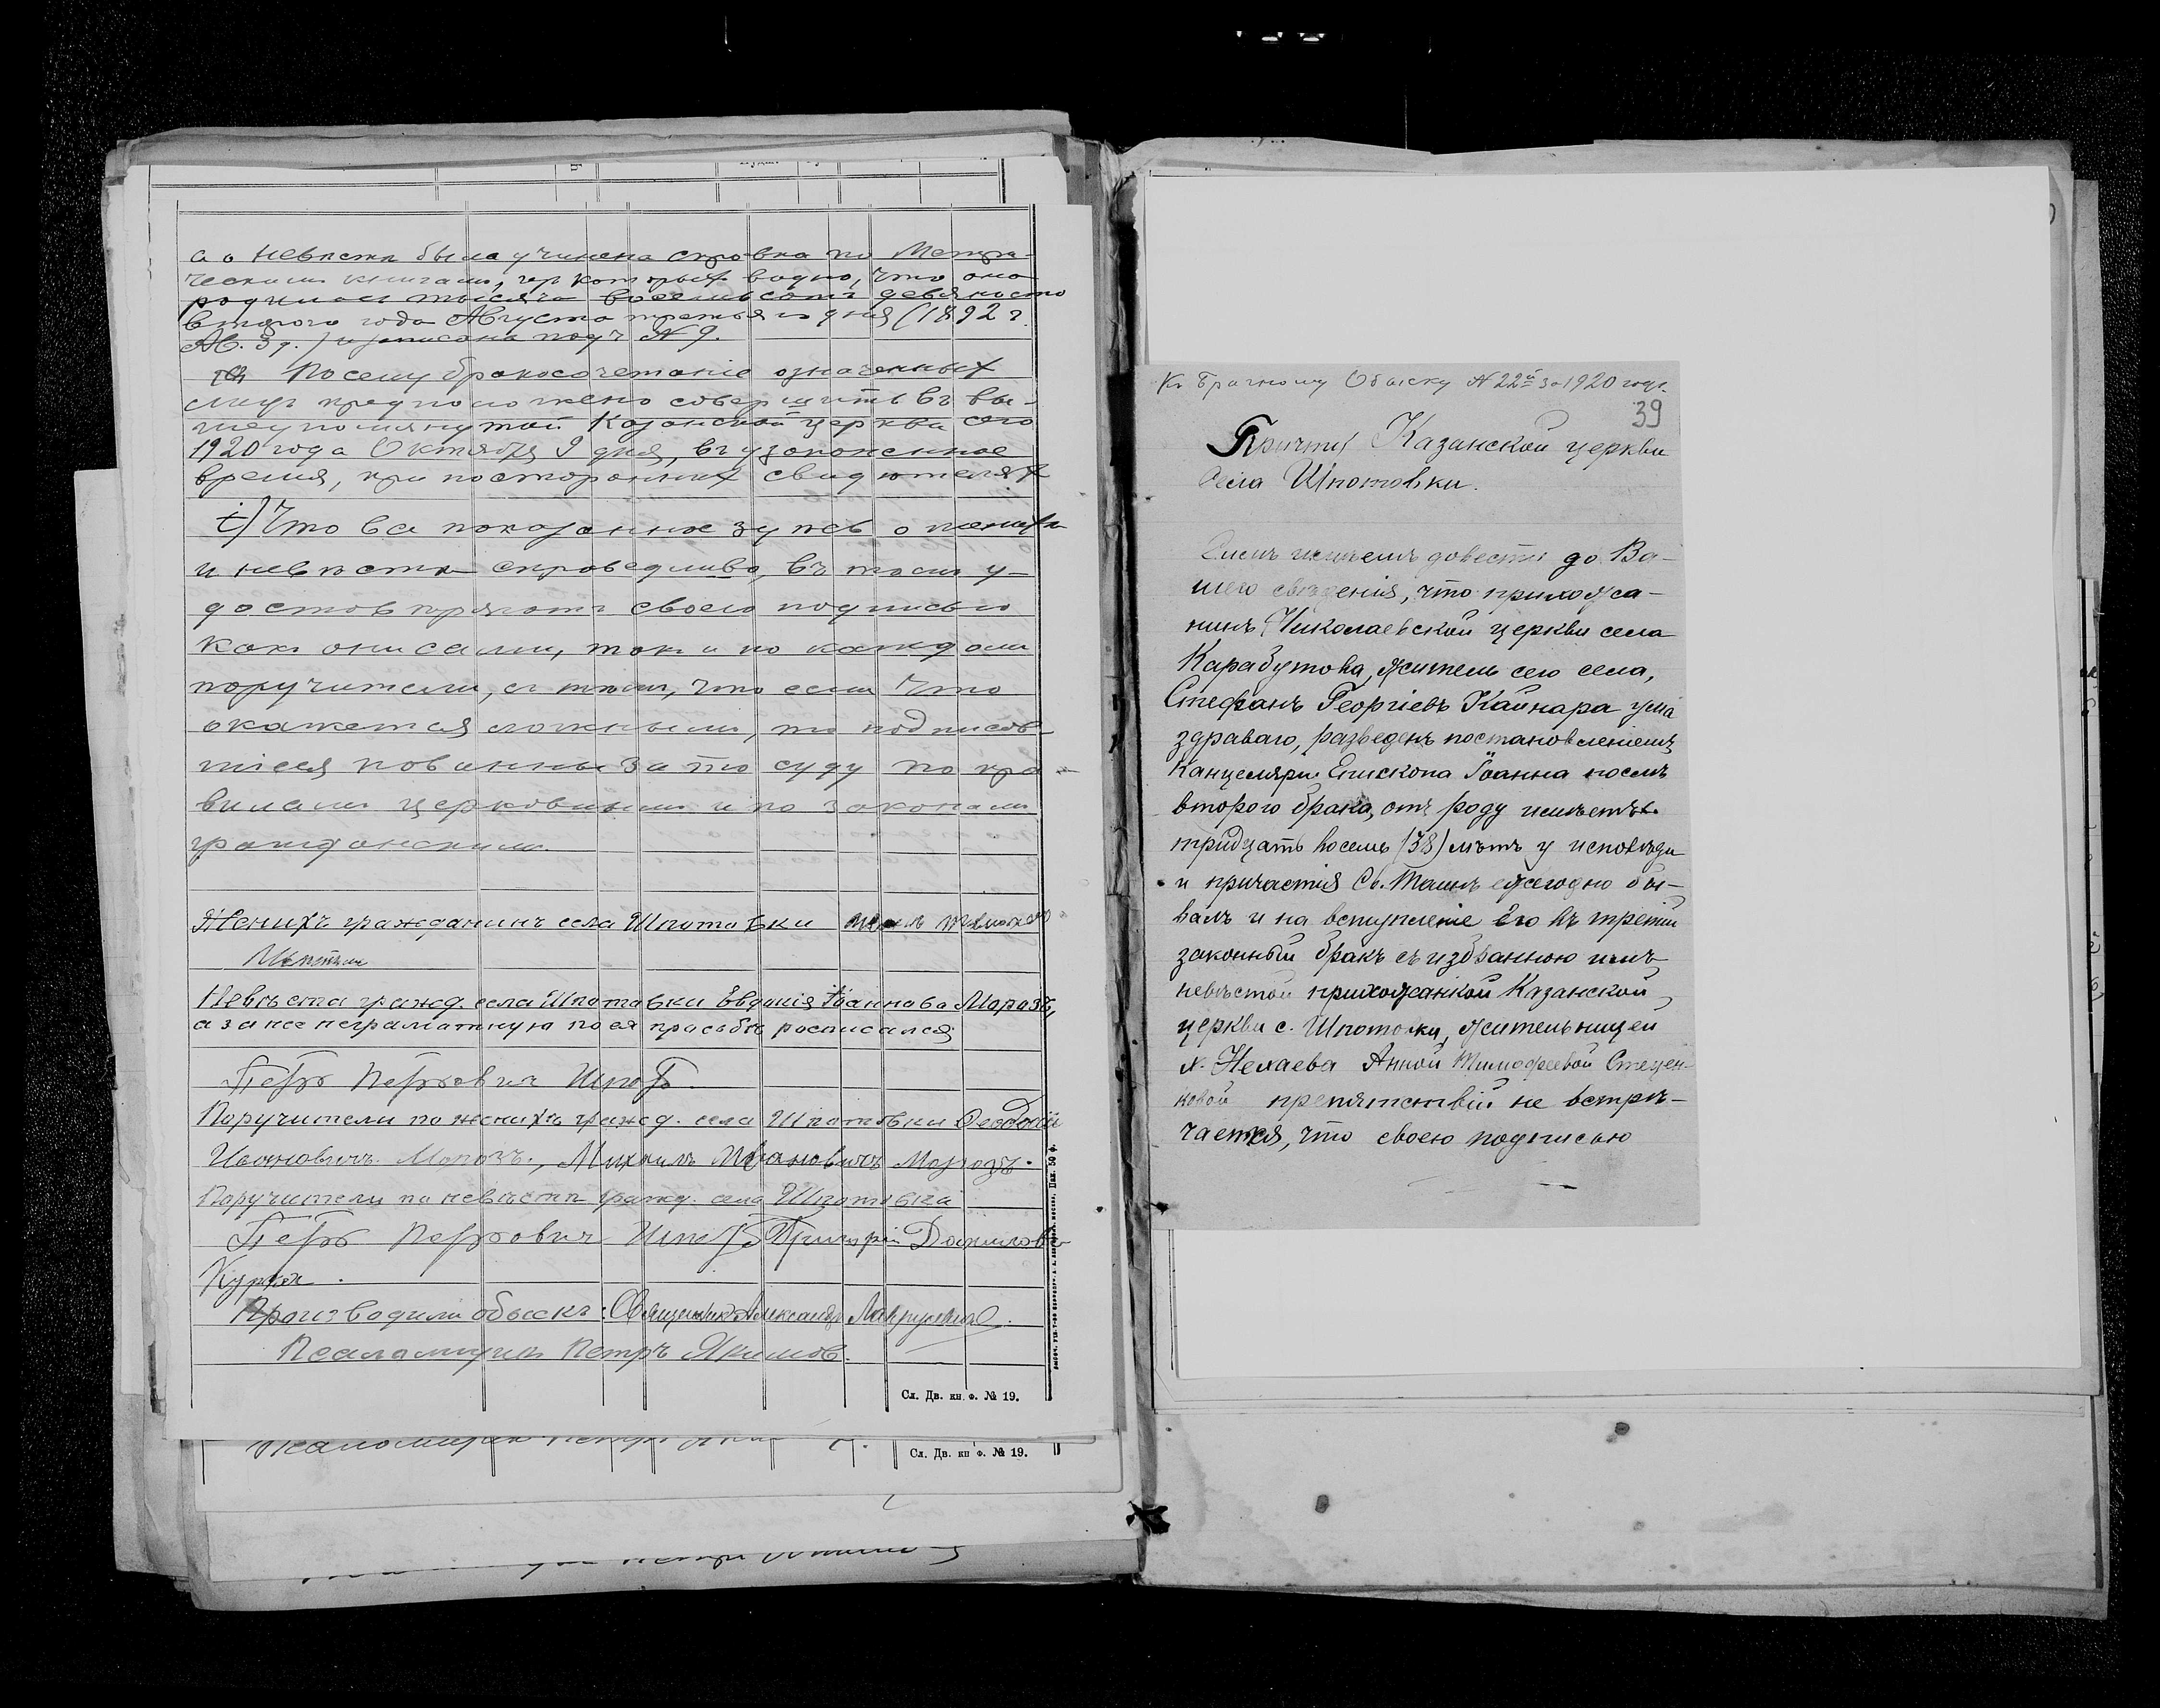 а о невѣстѣ была учинена справка по Метри-
ческимъ книгамъ, изъ которыхъ видно, что она
родилась тысяча восемьсотъ девяносто
второго года Августа третьяго дня (1892 г.
Ав. 3 д.) и записана подъ № 9.
Посему бракосочетаніе означенныхъ
лицъ предположено совершить въ вы-
шеупомянутой Казанской церкви сего
1920 года Октября 9 дня, въ узаконенное
время, при постороннихъ свидѣтеляхъ
i) Что все показанное здѣсь о женихѣ
и невѣстѣ справедливо, въ томъ у-
достовѣряютъ своею подписью
какъ они сами, такъ и по каждомъ
поручители, съ тѣмъ, что если что
окажется ложнымъ, то подписав-
шіеся повинны за то суду по пра-
виламъ церковнымъ и по законамъ
гражданскимъ.
Женихъ гражданинъ села Шпотовки
Невѣста гражд. села Шпотовки Евдокія Іоаннова Морозъ,
а за нее неграматную по ея просьбѣ росписался
Петръ Петровичъ Шпотъ.
Поручители по женихѣ гражд. села Шпотовки Феодосій
Ивановичъ Морозъ, Михаилъ Ивановичъ Морозъ.
Поручители по невѣстѣ гражд. села Шпотовки
Петръ Петровичъ Шпотъ Григорій Даниловъ
Курка.
Производили обыскъ: Священникъ Александръ
Псаломщикъ Петръ Якимов.
Сл. Дв. кн. ф. № 19.
Сл. Дв. кн. ф. № 19.
Къ Брачному Обыску № 22й за 1920 годъ.
39
Причту Казанской церкви
села Шпотовки.
Симъ имѣемъ довести до Ва-
шего свѣденія, что прихожа-
нинъ Николаевской церкви села
Карабутова, житель сего села,
Стефанъ Георгіевъ Кайнара ума
здраваго, разведенъ постановленіемъ
Канцеляріи Епископа Іоанна послѣ
второго брака, отъ роду имѣетъ
тридцать восемь (38) лѣтъ у исповѣди
и причастія Св. Таинъ ежегодно бы-
валъ и на вступленіе его въ третій
законный бракъ съ избранною имъ
невѣстой прихожанкой Казанской
церкви с. Шпотовки, жительницей
х. Нехаева Анной Тимофеевой Стецен-
ковой препятствій не встрѣ-
чается, что своею подписью